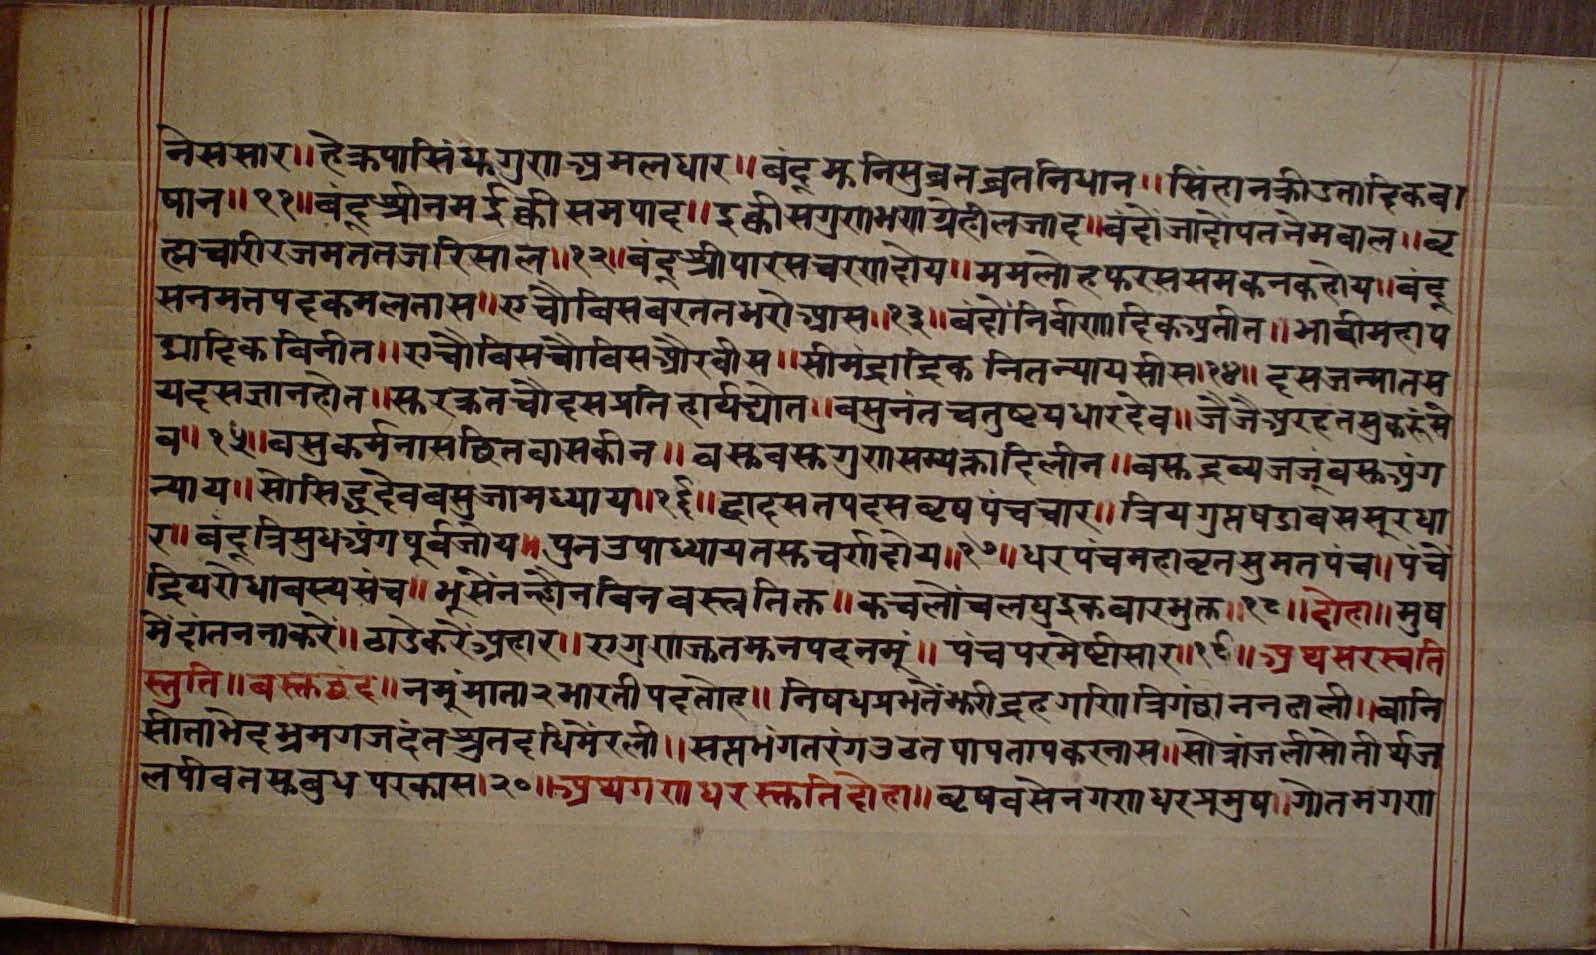 नेससार॥ हेक्रपासिंधुगुणअमलधार॥ बंदूमुनिसुब्रतब्रतनिधान॥ सिंहानक्रीडतादिकब
षान॥११॥ बंदूश्रीनमईक्कीसमपाद॥ इक्कीसगुणभणग्रेहीलजाद॥ बंदोजादोंपतनेमबाल॥ ब्र
ह्मचारीरजमततजरिसाल॥१२॥ बंदूश्रीपारसचरणदोय॥ ममलोहफरससमकनकहोय॥ बंदू
सनमतपदकमलतास॥ एचौबिसबरततभरोआस॥१३॥ बंदोंनिर्वाणादिकअतीत॥ भाबीमहाप
द्मादिकबिनीत॥ एचौबिसचौबिसऔरबीस॥ सीमंद्रादिक नितन्यायसीस॥१४॥ दसजन्मातस
यदसज्ञानहोत॥ सुरक्रतचौदसप्रतिहार्यद्योत॥ बसुनंतचतुष्टयधारदेव॥ जैजैअरहतसुकहंसे
व॥१५॥ बसुकर्मनासछितबासकीन॥ वसुबसुगुणसम्यक्तादिलीन॥ बसुद्रव्यजजूंबसुअंग
न्याय॥ सोसिद्धदेवबसुजामध्याय॥१६॥ द्वादसतपदसब्रषपंचचार॥ त्रियगुप्तषडाबससूरधा
र॥ बंदूत्रिसुधअंगपूर्वजोय॥ पुनउपाध्यायतसुचर्णदोय॥१७॥ धरपंचमहाब्रतसुमतपंच॥ पंचें
द्रियरोधाबस्यसंच॥ भूसैंनन्हौनबिनबस्त्रतिक्त॥ कचलौंचलघुइकबारभुक्त॥१८॥ दोहा॥ मुष
मेंदांतननाकरें॥ ठाडेकरेंअहार॥ एगुणजुतमुनपदनमूं॥ पंचपरमेष्टीसार॥१९॥ अथसरस्वति
स्तुति॥ बस्तछंद॥ नमूंमातारभारतीपदतोह॥ निषधप्रभतैंझरीद्रहगणित्रिगंछाननढाली॥ बानि
सीताभेदभ्रमगजदंतश्रुतदधिमेंरली॥ सप्तभंगतरंगउठतपापतापकरनास॥ सोत्रांजलीसोतीर्थज
लपीवतसुबुधपरकास॥२०॥ अथगणधरस्तुतिदोहा॥ ब्रषबसेनगणधरप्रमुष॥ गौतमगण